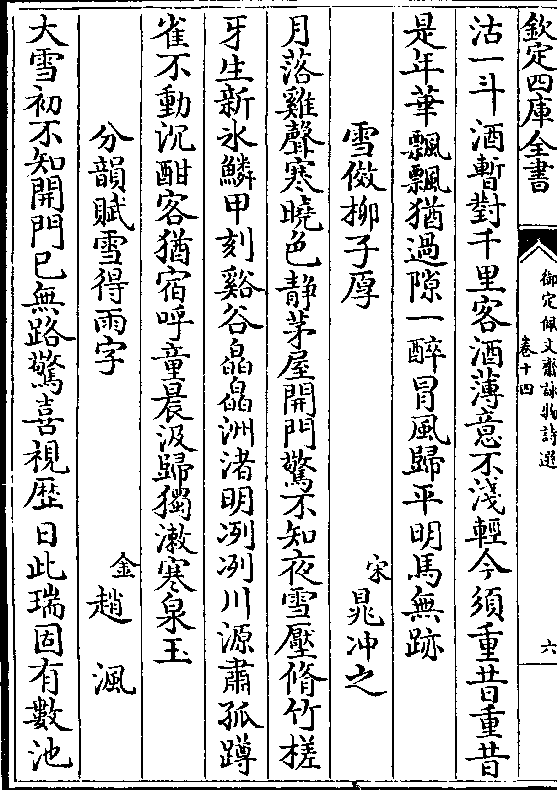 欽定四庫全書
御定佩文齋詠物詩選
卷十四
六
沽一斗酒暫對千里客酒薄意不淺輕今須重昔重昔
是年華飄飄猶過隙一醉冒風歸平明馬無跡
雪傚柳子厚
宋晁冲之
月落雞聲寒曉色靜茅屋開門驚不知夜雪壓脩竹槎
牙生新氷鱗甲刻谿谷皛皛洲渚明冽冽川源肅孤蹲
雀不動沉酣客猶宿呼童晨汲歸獨漱寒泉玉
分韻賦雪得雨字
金趙渢
大雪初不知開門已無路驚喜視歴日此瑞固有數池